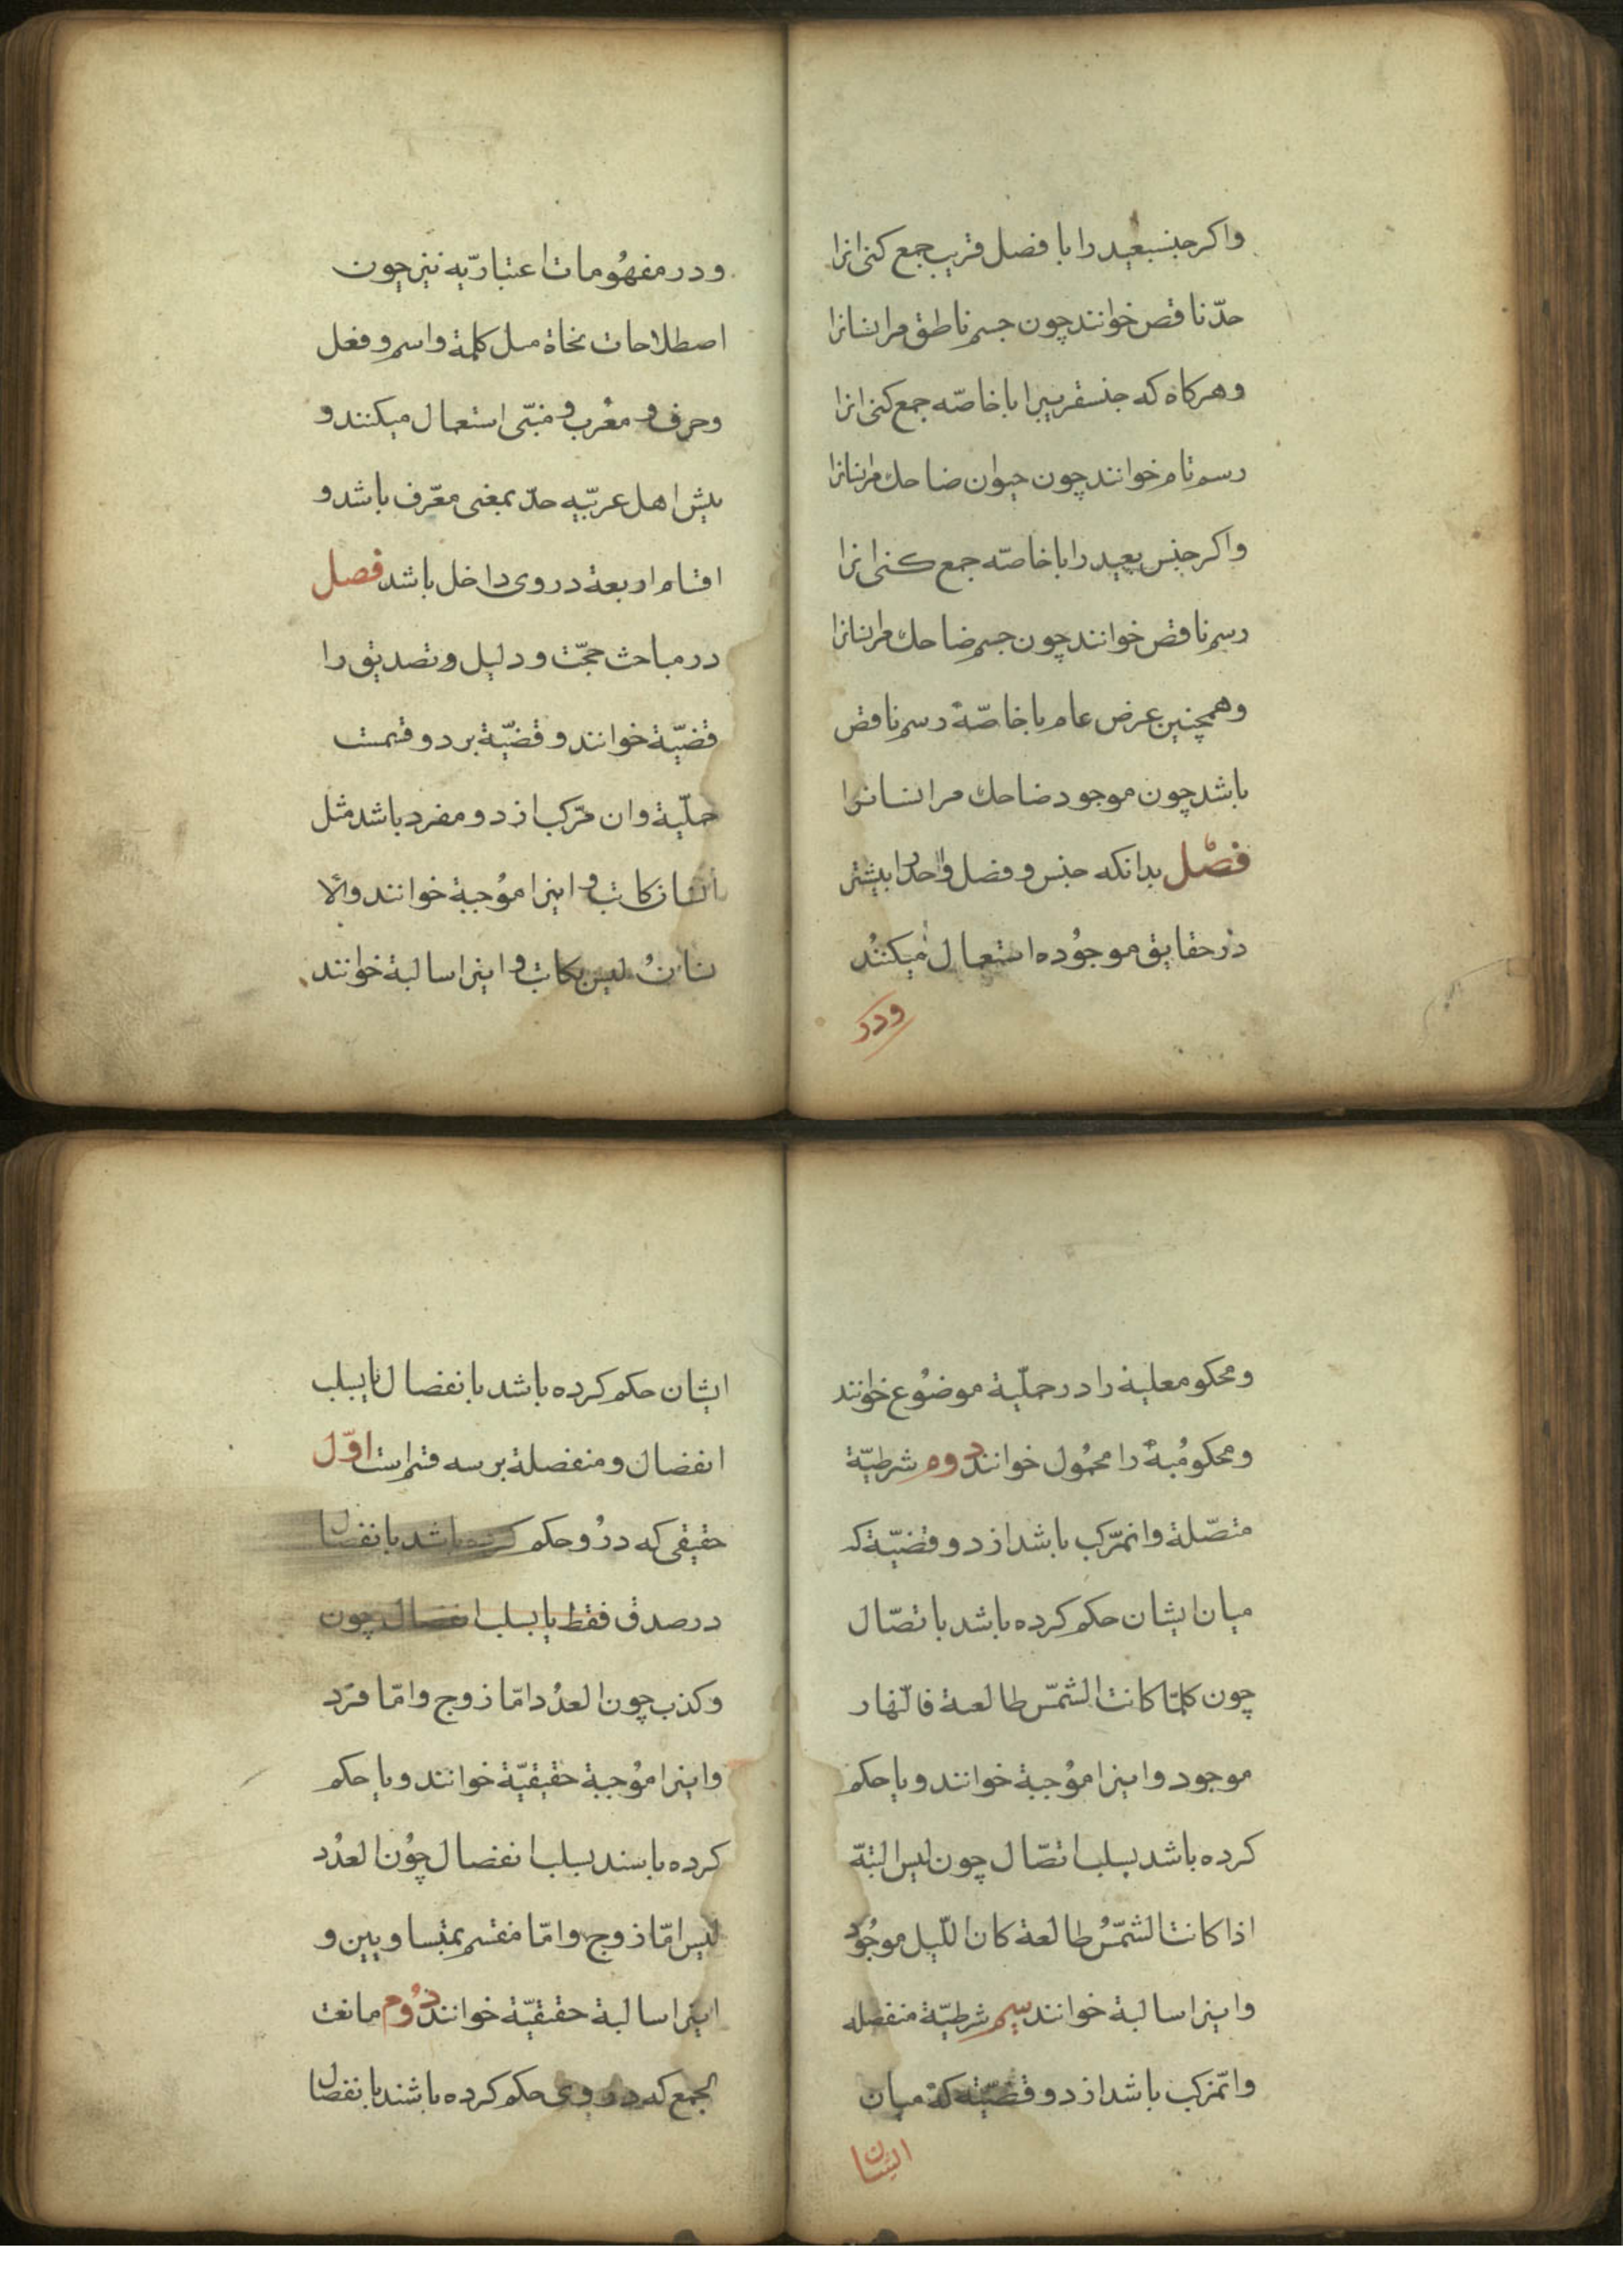 واکر جنس بعید را با فصل قریب جمع کنی انرا
حدّ ناقص خوانند چون جسم ناطق مر انسانرا
وهرکاه که جنس قریبرا با خاصّه جمع کنی انرا
رسم تام خوانند چون حیوان ضاحك مر انسانرا
واکر جنس بعید را با خاصّه جمع کنی انرا
رسم ناقص خوانند چون جسم ضاحك مر انسانرا
وهمچنین عرض عام با خاصّهٔ رسم ناقص
باشد چون موجود ضاحك مر انسانرا
فصل بدانکه جنس و فصل واحد را بیشتر
در حقایق موجُوده استعمال میکنند
ودر
ودر مفهُومات اعتباریّه نیز چون
اصطلاحات نحاة مسل کلمة واسم وفعل
وحرف ومعُرب ومبنّی استعمال میکنند و
بیش اهل عربیّه حدّ بمعنی معّرف باشد و
اقسام اربعة در وی داخل باشد فصل
در مباحث حجّت ودلیل وتصدیق را
قضیّة خوانند وقضیّة بر دو قسمست
حملّیة وان مرّکب از دو مفرد باشد مثل
انسان کاتب واینرا موُجبة خوانند والا
نسانُ لیس بکاتب واینرا سالبة خوانند
ومحکوم علیه را در حملّیة موضوُع خوانند
ومحکومُ بهٔ را محمُول خوانند دوم شرطیّة
متصّلة وان مرّکب باشد از دو قضیّة که
میان ایشان حکم کرده باشد باتصّال
چون کلمّا کانت الشمّس طالعة فالنّهار
موجود واینرا موُجبة خوانند ویا حکم
کرده باشد بسلب اتصّال چون لیس البتّة
اذا کانت الشمّسُ طالعة کان اللّیل موجوُد
واینرا سالبة خوانند سیم شرطیّة منفصله
وان مرکب باشد از دو قضیّة که میان
ایشان
ایشان حکم کرده باشد بانفصال یا بسلب
انفصال ومنفصلة بر سه قسم است اوّل
حقیقی که درُو حکم کرده باشد بانفصال
در صدق فقط یا بسلب انفصال چون
وکذب چون العدُد امّا زوج وامّا فرَد
واینرا موُجبة حقیقیّة خوانند ویا حکم
کرده باسند بسلب انفصال چوُن العدُد
لیس امّا زوج وامّا منقسم بمتساویین و
اینرا سالبة حقیقیّة خوانند دوُم مانعت
الجمع که در وی حکم کرده باشند بانفصال